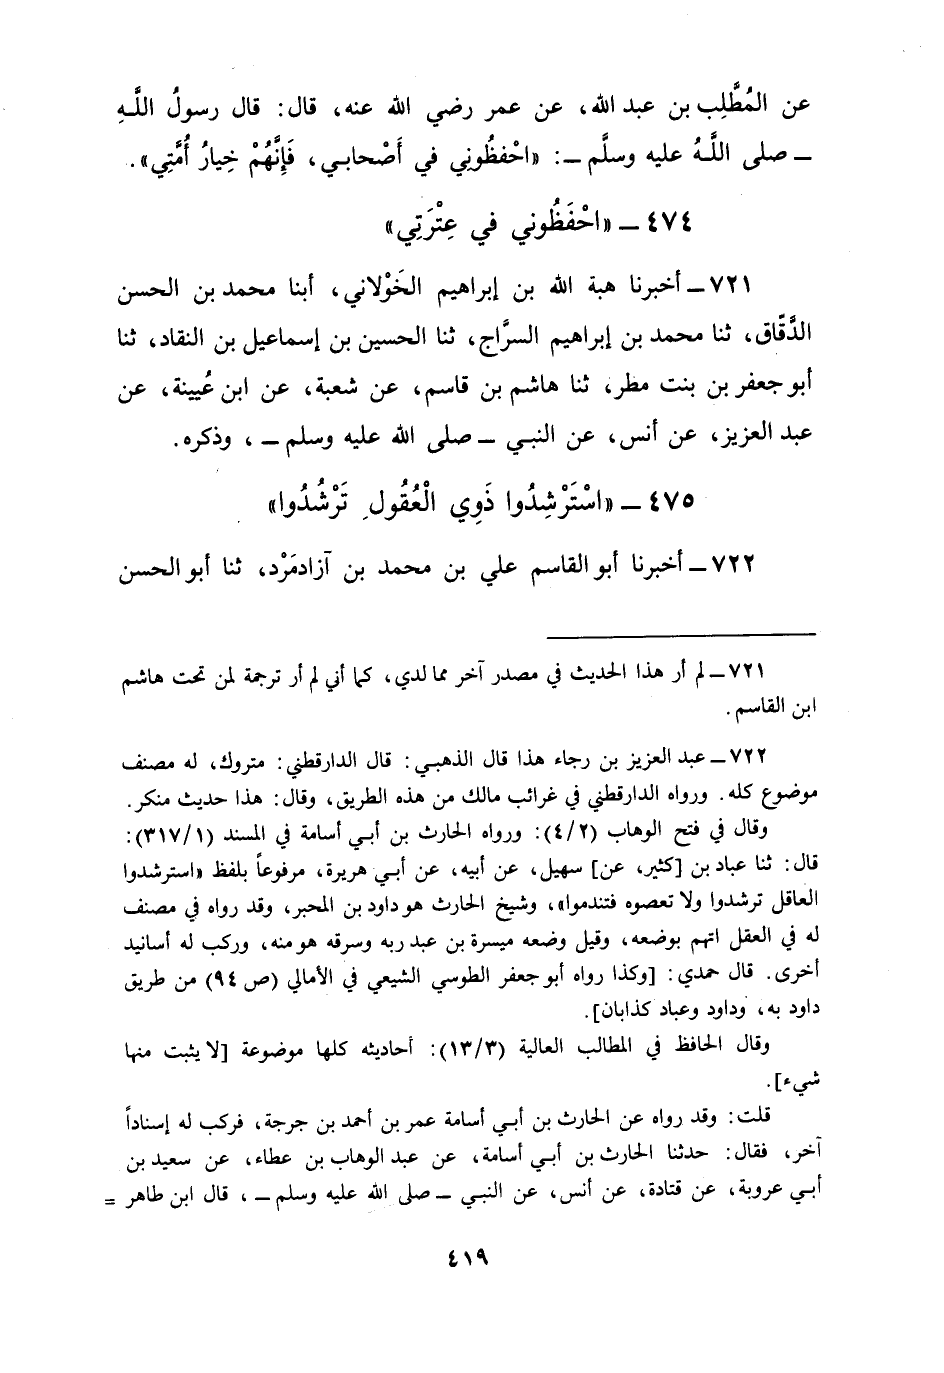 عن المُطَّلِب بن عبد الله، عن عمر رضي الله عنه، قال: قال رسولُ اللَّهِ
– صلى اللَّهُ عليه وسلَّم –: «احْفظُوني في أَصْحابي، فَإِنَّهُمْ خِيارُ أُمَّتِي».
٤٧٤ – «احْفَظُوني في عِتْرَتِي»
٧٢١ – أخبرنا هبة الله بن إبراهيم الخَوْلاني، أبنا محمد بن الحسن
الدَّقَّاق، ثنا محمد بن إبراهيم السرَّاج، ثنا الحسين بن إسماعيل بن النقاد، ثنا
أبو جعفر بن بنت مطر، ثنا هاشم بن قاسم، عن شعبة، عن ابن عُيينة، عن
عبد العزيز، عن أنس، عن النبي – صلى الله عليه وسلم –، وذكره.
٤٧٥ – «اسْتَرْشِدُوا ذَوِي الْعُقُولِ تَرْشُدُوا»
٧٢٢ – أخبرنا أبو القاسم علي بن محمد بن آزادمَرْد، ثنا أبو الحسن
٧٢١ – لم أر هذا الحديث في مصدر آخر مما لدي، كما أني لم أر ترجمة لمن تحت هاشم
ابن القاسم.
٧٢٢ – عبد العزيز بن رجاء هذا قال الذهبي: قال الدارقطني: متروك، له مصنف
موضوع كله. ورواه الدارقطني في غرائب مالك من هذه الطريق، وقال: هذا حديث منكر.
وقال في فتح الوهاب (٤/٢): ورواه الحارث بن أبي أسامة في المسند (٣١٧/١):
قال: ثنا عباد بن [كثير، عن] سهيل، عن أبيه، عن أبي هريرة، مرفوعاً بلفظ «استرشدوا
العاقل ترشدوا ولا تعصوه فتندموا»، وشيخ الحارث هو داود بن المحبر، وقد رواه في مصنف
له في العقل اتهم بوضعه، وقيل وضعه ميسرة بن عبد ربه وسرقه هو منه، وركب له أسانيد
أخرى. قال حمدي: [وكذا رواه أبو جعفر الطوسي الشيعي في الأمالي (ص ٩٤) من طريق
داود به، وداود وعباد كذابان].
وقال الحافظ في المطالب العالية (١٣/٣): أحاديثه كلها موضوعة [لا يثبت منها
شيء].
قلت: وقد رواه عن الحارث بن أبي أسامة عمر بن أحمد بن جرجة، فركب له إسناداً
آخر، فقال: حدثنا الحارث بن أبي أسامة، عن عبد الوهاب بن عطاء، عن سعيد بن
أبي عروبة، عن قتادة، عن أنس، عن النبي – صلى الله عليه وسلم –، قال ابن طاهر =
٤١٩